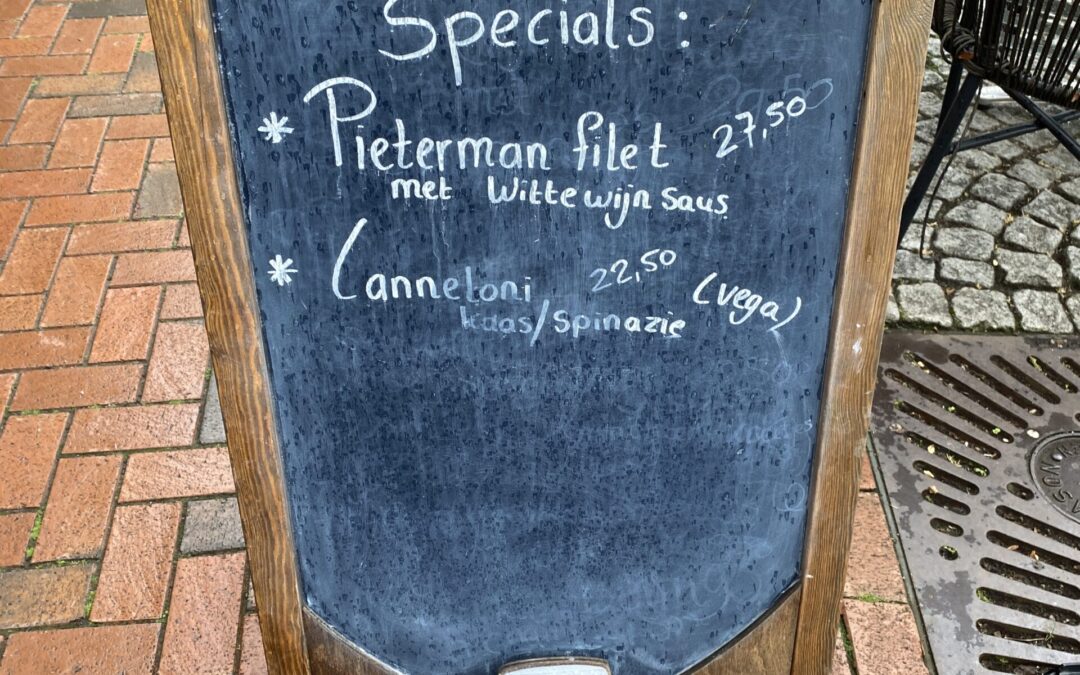 Specials:
* Pieterman filet 27,50
met Witte wijn saus
* Canneloni 22,50 (vega)
kaas/Spinazie